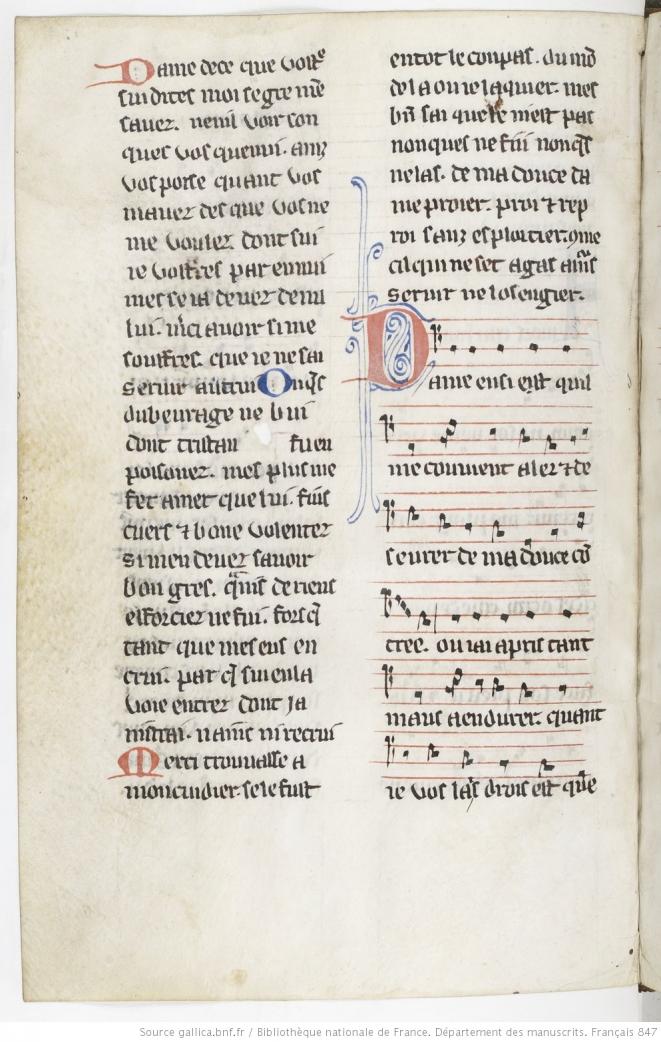 Dame dece que vostrͤ
sui dites moi se gre me
savez. nenil voir son
ques vos quenui. ainz
vos poise quant vos
mavez des que vos ne
me voulez dont sui
ie vostres par ennui
mes se ia devez de nu
lui. mͨci avoir si me
souffres. que ie ne sai
servir autrui Onqͥs
du bevrage ne bui
dont tristan fu en
poisonez. mes plus me
fet amer que lui. fins
cuers ⁊ bone volentez
si men devez savoir
bon gres. qͣnͥs de riens
esforcier ne fui. fors qͥ
tant que mes eus en
crui. par qͥ sui en la
voie entrez dont ja
nistrai. nains ni recrui
Merci trouvasse a
mon cuidier. se le fust
entot le conpas. du mō
de la ou ie la quier. mes
bn̄ sai que ce niest pas
nonques ne fui nonqͥs
ne las. de ma douce da
me proier. proi ⁊ rep
roi sanz esploitier. ꝯme
cil qui ne set a gas amͣs
servir ne losengier.
Dame ensi est quil
me convient aler ⁊ de
sevrer de ma douce cō
tree. ou iai apris tant
maus a endurer. quant
ie vos lais drois est que
Source gallica.bnf.fr / Bibliothèque nationale de France. Département des manuscrits. Français 847